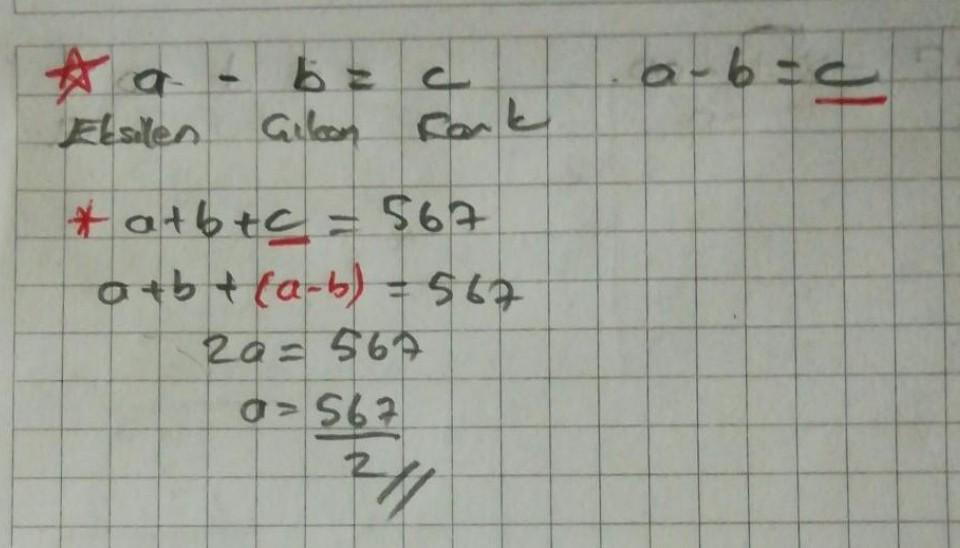 ☆ a - b = c a-b = c
Eksilen Çıkan Fark
* a+b+c = 567
a+b+(a-b) = 567
2a = 567
a = 567/2 //